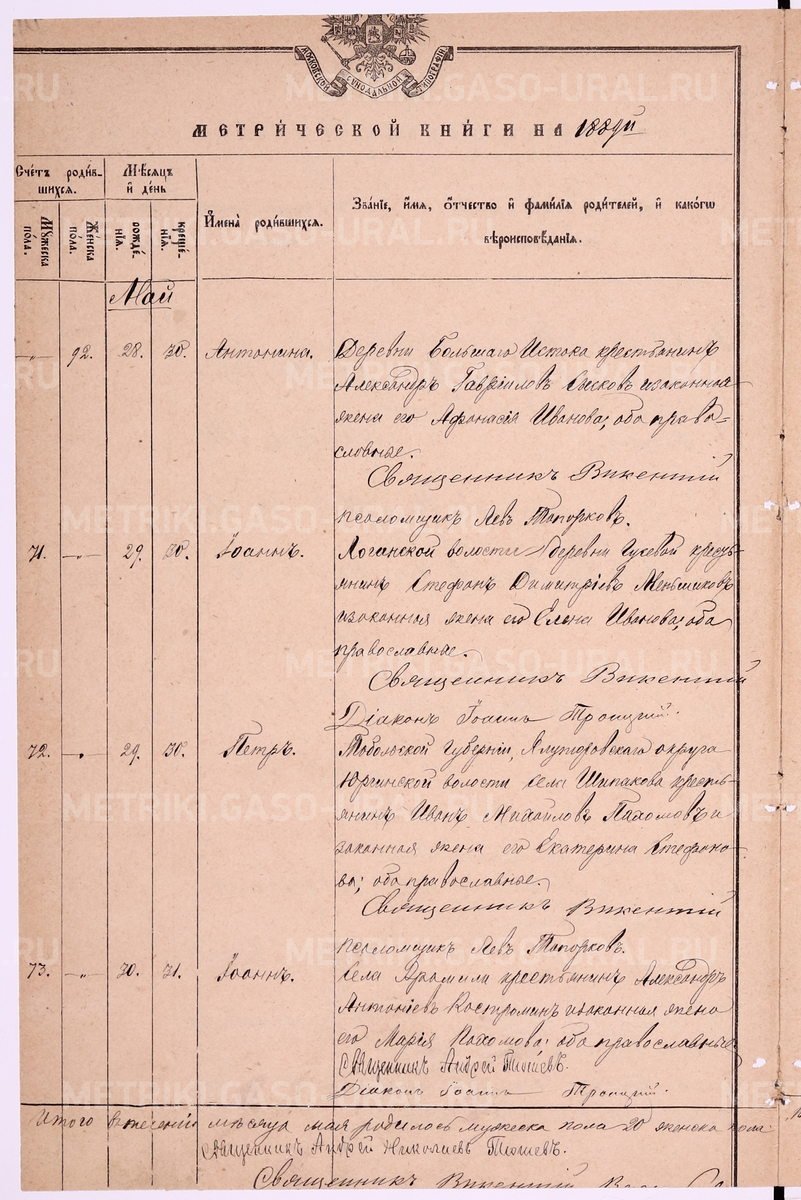 МОСКОВСКОЙ СУНОДАЛЬНОЙ ТИПОГРАФІИ
МЕТРИ́ЧЕСКОЙ КНИ́ГИ НА 188
Сче́тъ роди́в-
шихся.
Мѣ́сяцъ
и҆ де́нь
И҆мена̀ роди́вшихся.
Зва́ніе, и҆́мя, ѻ҆́тчество и҆ фами́лія роди́телей, и҆ како́гѡ
вѣроисповѣ́данія.
Мꙋ́жеска
по́ла.
Же́нска
по́ла.
рожде́-
нія.
креще́-
нія.
Май
—„— 92. 28. 30. Антонина. Деревни Большаго Истока крестьянинъ
Александръ Гавріиловъ Сысковъ и законная
жена его Афанасія Иванова; оба право=
славные.
Священникъ Викентій
Псаломщикъ Левъ Топорковъ.
71. —„— 29. 30. Іоаннъ. Логанской волости деревни Гусевой кресть-
янинъ Стефанъ Димитріевъ Меньшиковъ
и законная жена его Елена Иванова; оба
православные.
Священникъ Викентій
Діаконъ Іоаннъ Троицкій.
72. —„— 29. 30. Петръ. Тобольской Губерніи, Ялуторовскаго округа
Юргинской волости села Шипакова кресть-
янинъ Иванъ Михайловъ Пахомовъ и
законная жена его Екатерина Стефано-
ва; оба православные.
Священникъ Викентій
Псаломщикъ Левъ Топорковъ.
73. —„— 30. 31. Іоаннъ. Села Арамила крестьянинъ Александръ
Антоніевъ Костроминъ и законная жена
его Марія Пахомова; оба православные
Священникъ Андрей
Діаконъ Іоаннъ Троицкій.
Итого въ теченіи мѣсяца мая родилось мужеска пола 20 женска пола
Священникъ Андрей Николаевъ
Священникъ Викентій
METRIKI.GASO-URAL.RU